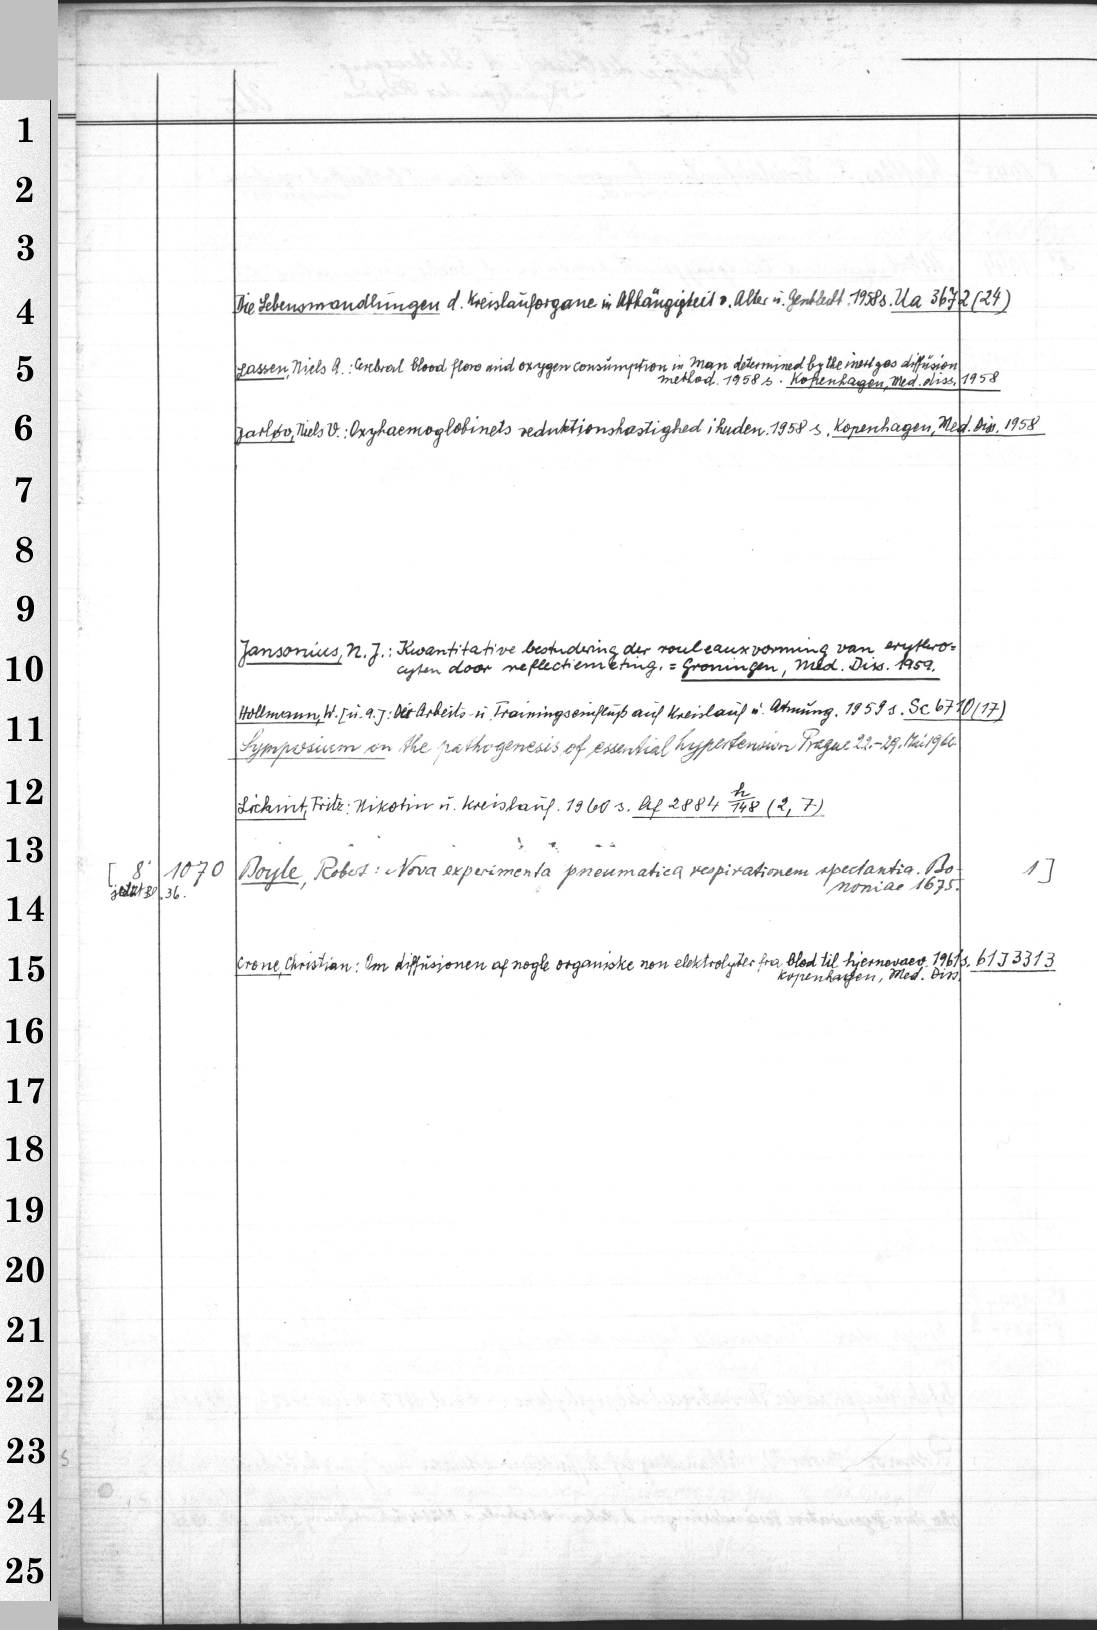 1
2
3
4
5
6
7
8
9
10
11
12
13
14
15
16
17
18
19
20
21
22
23
24
25
Die Lebenswandlungen d. Kreislauforgane in Abhängigkeit v. Alter u. Geschlecht. 1958 s. Ua 3672 (24)
Lassen, Niels A.: Cerebral blood flow and oxygen consumption in Man determined by the inert gas diffusion
method. 1958 s. Kopenhagen, Med. diss. 1958
Jarløv, Niels V.: Oxyhaemoglobinets reduktionshastighed i huden. 1958 s. Kopenhagen, Med. Diss. 1958
Jansonius, N. J.: Kwantitative bestudering der rouleauxvorming van erythro=
cyten door reflectiemeting. = Groningen, Med. Diss. 1959.
Hollmann, W. [u. a.]: Der Arbeits- u. Trainingseinfluß auf Kreislauf u. Atmung. 1959 s. Sc 6710 (17)
Symposium on the pathogenesis of essential hypertension Prague 22.-29. Mai 1960
Lickint, Fritz: Nikotin u. Kreislauf. 1960 s. Af 2884 h/148 (2, 7)
[ 8° 1070 Boyle, Robert: Nova experimenta pneumatica respirationem spectantia. Bo- 1]
jetzt 36. noniae 1675.
Crone, Christian: Om diffusionen af nogle organiske non elektrolyter fra blod til hjernevaev. 1961 s. 61 J 3313
Kopenhagen, Med. Diss.